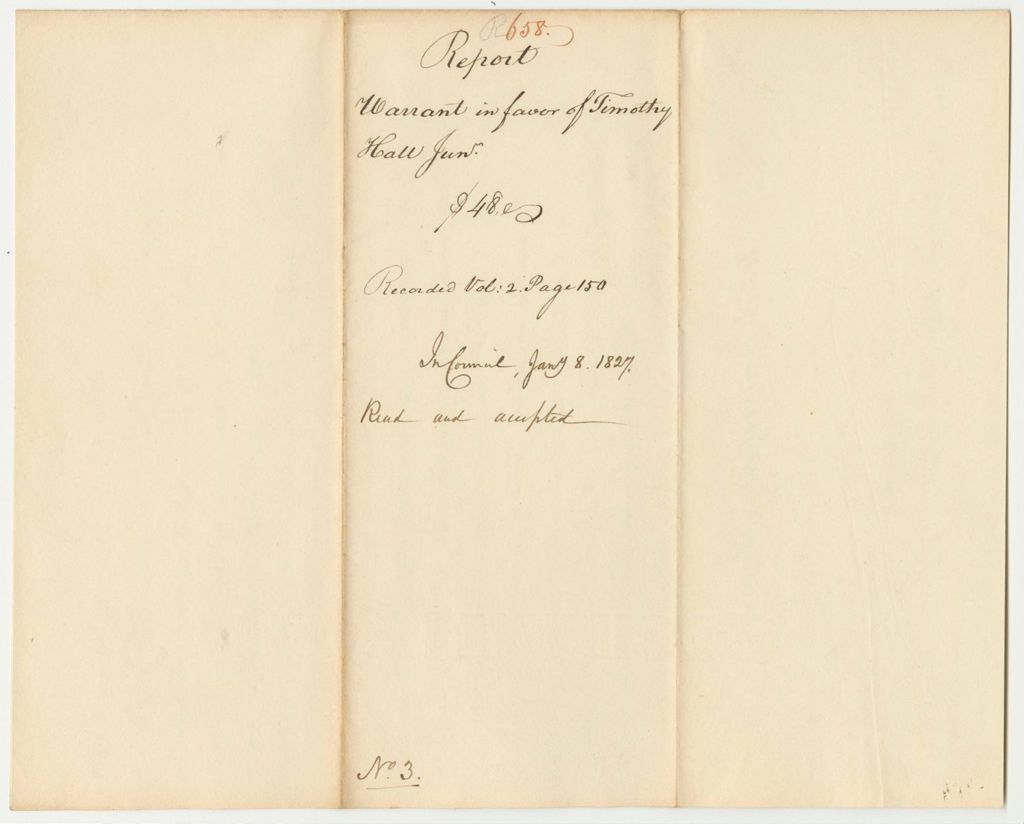 R658.
Report
Warrant in favor of Timothy
Hall Junr.
$48.
Recorded Vol: 2. Page 150
In Council, Jany 8. 1827.
Read and accepted
No 3.